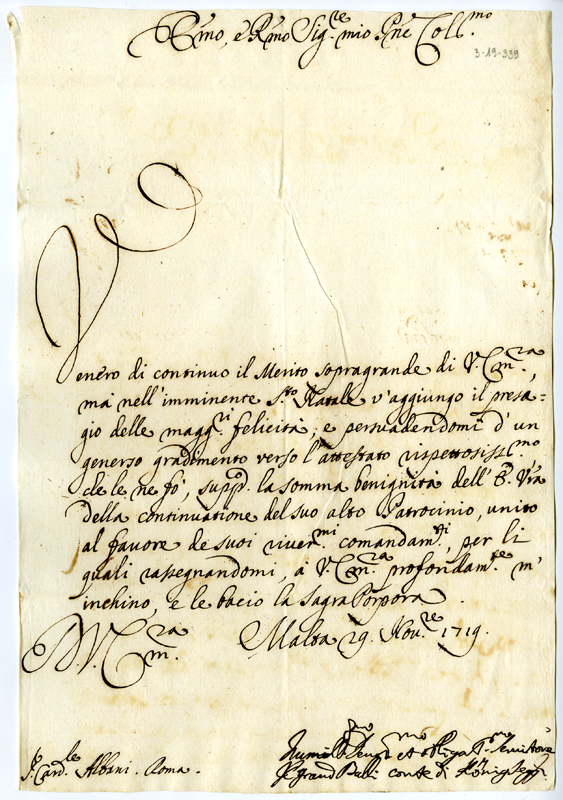 Emo, e Rmo Sig.re mio Pne Coll.mo
3-19-339
Venero di continuo il Merito sopragrande di V. Em.za,
ma nell'imminente S.to Natale v'aggiungo il presa=
gio delle magg.ri felicità, e persuadendomi d'un
generso gradimento verso l'attestato rispettosiss.mo,
che le ne fò, supp.o la somma benignità dell' E. Vra
della continuatione del suo alto Patrocinio, unito
al favore de suoi river.mi comandam.ti, per li
quali rassegnandomi, à V. Em.za profondam.te m'
inchino, e le bacio la Sagra Porpora.
D. V. Em.za Malta 29. Nov.re 1719.
S.r Card.le Albani. Roma.
Humil.mo et obliga.mo Servitore
Il Grand Bali conte di Königsegg